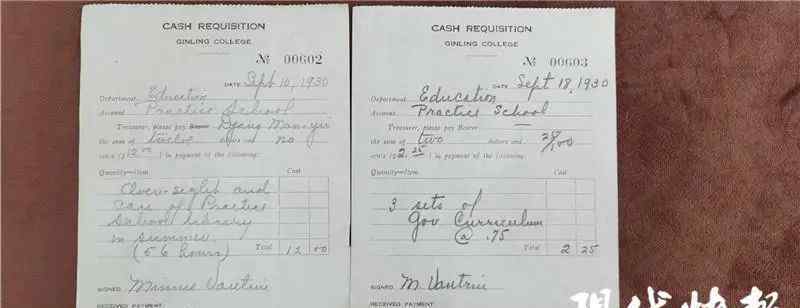 CASH REQUISITION
GINLING COLLEGE
№ 00602
DATE Sept 10, 1930
Department Education
Account Practice School
Treasurer, please pay Bearer
the sum of twelve dollars and no
cents ($12.00) in payment of the following:
Quantity—Item Cost
Over-sight and
care of Practice
School Library
in summer
(56 hours)
Total 12 00
SIGNED Minnie Vautrin
RECEIVED PAYMENT
CASH REQUISITION
GINLING COLLEGE
№ 00603
DATE Sept 18, 1930
Department Education
Account Practice School
Treasurer, please pay Bearer
the sum of two dollars and 25/100
cents ($2.25) in payment of the following:
Quantity—Item Cost
3 sets of
Gov Curriculum
@ .75
Total 2 25
SIGNED M. Vautrin
RECEIVED PAYMENT
现代快报